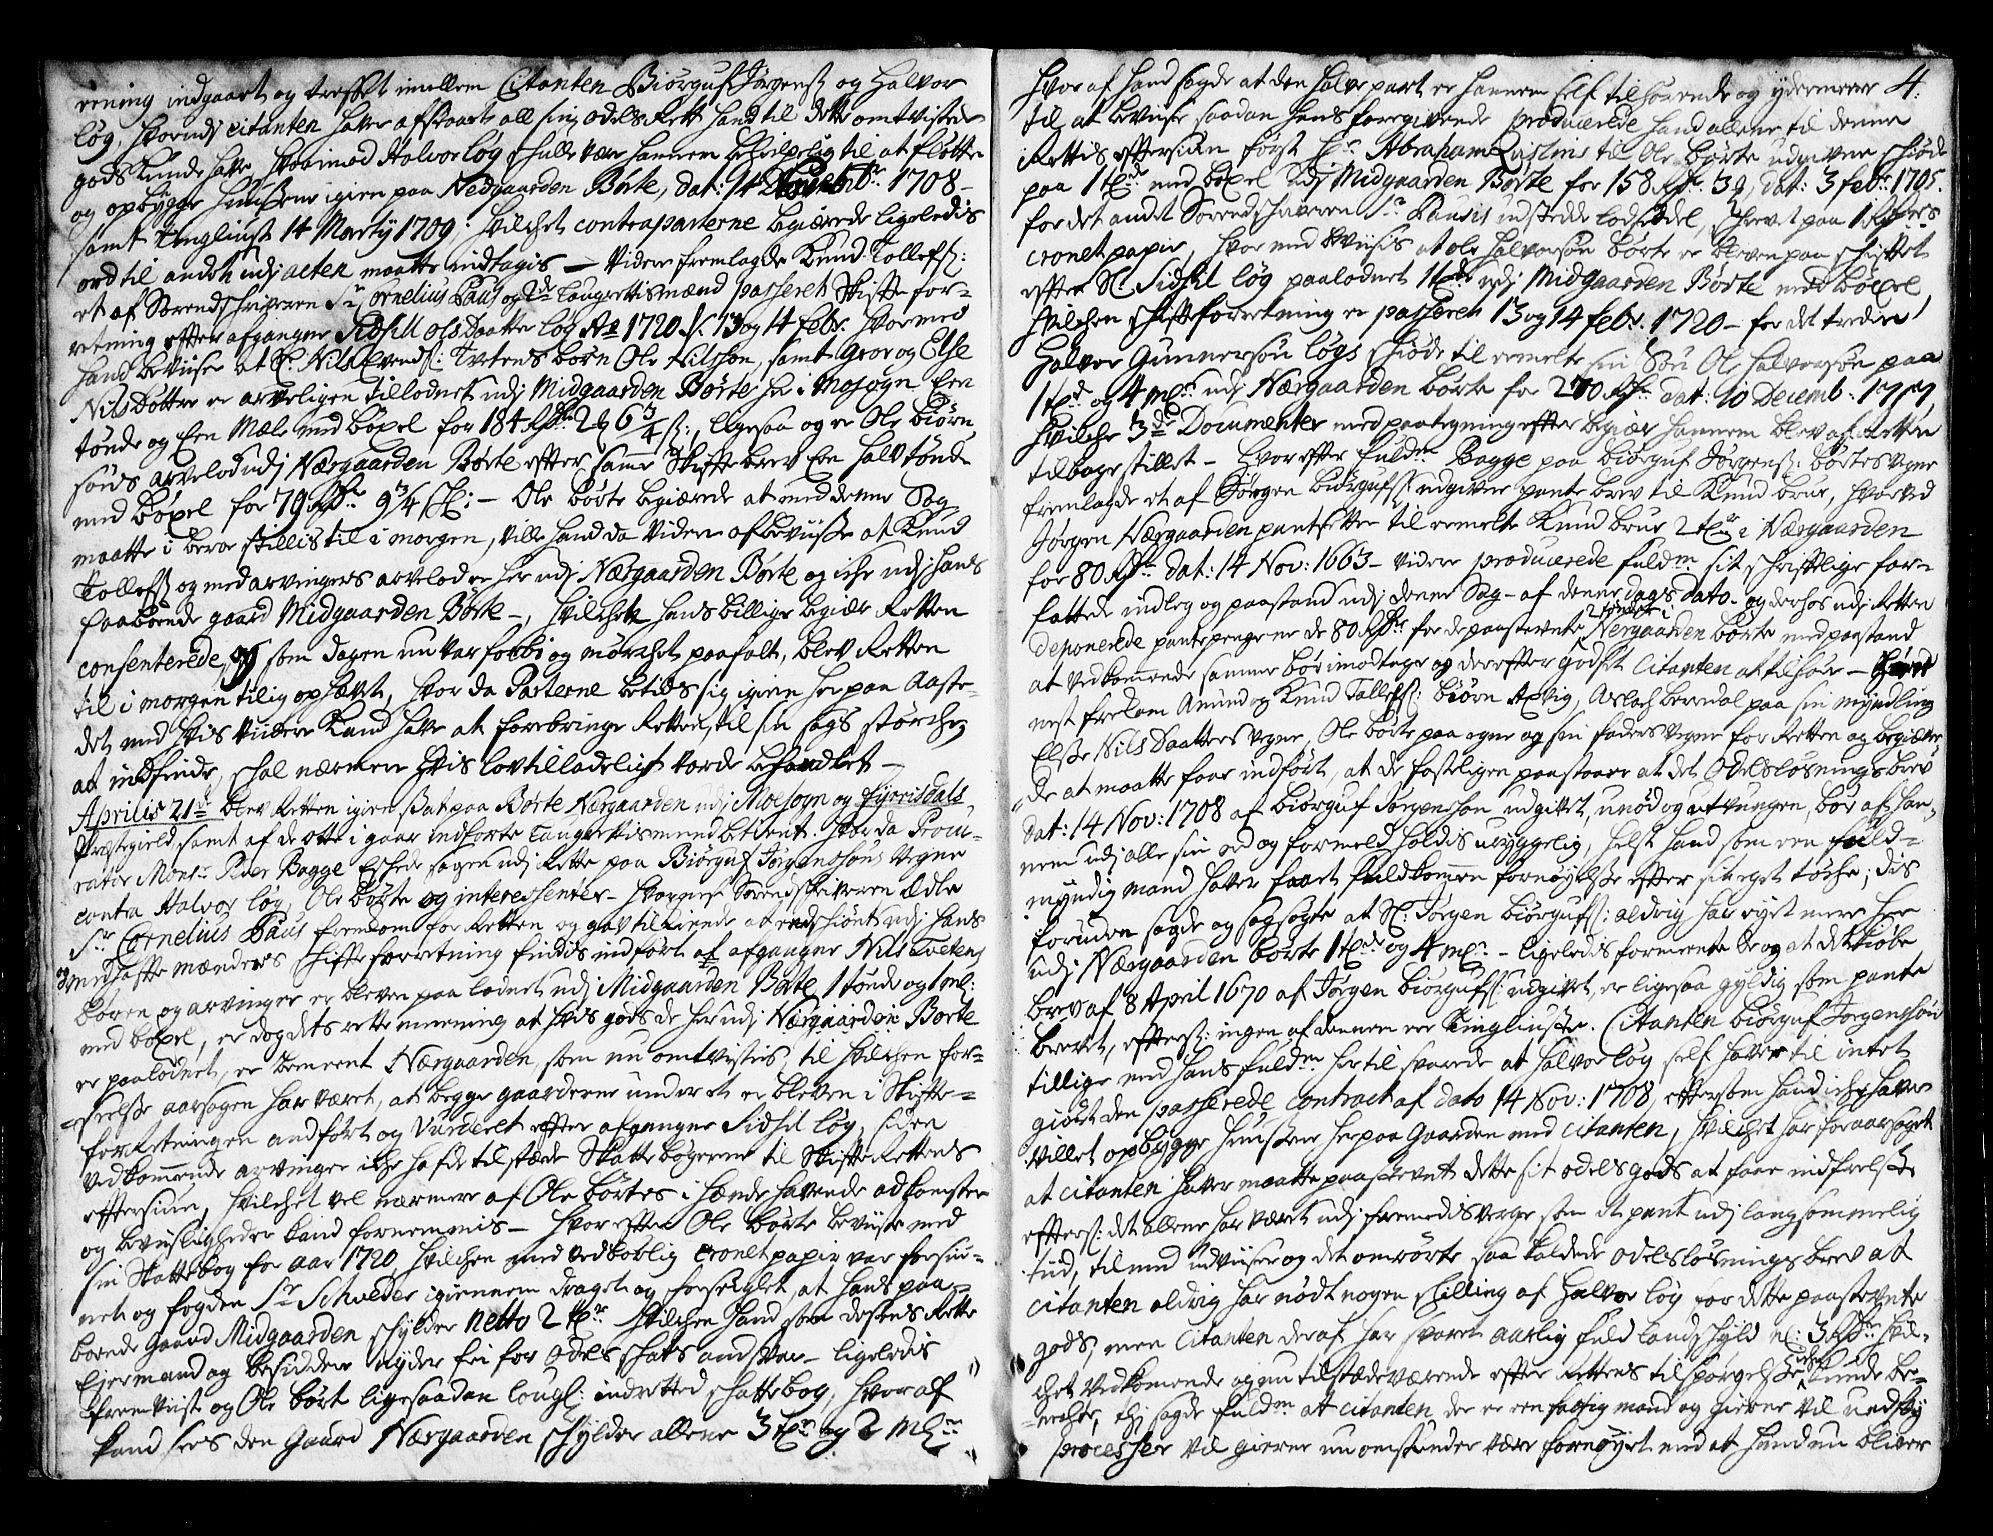 ening indgaaet og treffet imellem Citanten Biørguf Jørgens: og Halvor
Løg, hvorudj citanten hafver afstaaet all sin odels Rett hand til dette omtvistede
gods kunde hafve, hvorimod Halvor Løg skulle være hannem behielpelig til at fløtte
og opbygge huusene igien paa Nedgaarden Børte, dat: 14 Novembr 1708 -
samt Tingliust 14 Marty 1709; hvilchet contraparterne begiærede ligeledis
ord til andet udj acten maatte indtagis - Videre fremlagde Knud Tollefs:
et af Sorendschriveren Sr Cornelius Paus og 2de Laugrettismænd passeret Skifte for=
retning efter afgangne Sidsell Olsdaatter Løg Ao 1720 d. 13 og 14 Febr. hvormed
hand beviiser at Sl. Nils Evends: Tvetens børn Ole Nilsøn, samt Groe og Else
Nilsdøttre er arveligen tillodnet udj Midgaarden Børte her i Mosogn Een
tønde og Een Mæle med bøxel for 184 Rdr 2 q 6 3/4 s:, ligesaa og er Ole Biørn
søns arvelod udj Nærgaarden Børte efter samme Skiftebrev Een halv tønde
med bøxel for 79 Rdr 9 3/4 s: - Ole Børte begiærede at med denne Sag
maatte i beroe stillis til i morgen, ville hand da videre afbeviisse at Knud
Tollefs: og medarvingers arvelod er her udj Nærgaarden Børte og iche udj hans
paaboende gaard Midgaarden Børte -, hvilchet hans billige begiær Retten
consenterede, og som dagen nu var forbi og mørchet paafalt, blev Retten
til i morgen tilig ophævet, hvor da Parterne betids sig igien her paa Aaste=
det med hvis viidere kand hafve at forebringe Retten, til sin sags størche
at indfinde, schal nærmere hvis lovtilladeligt vorde behandlet -
Aprilis 21de blev Retten igien sat paa Børte Nærgaarden udj Moesogn og Fyrrisdals
Præstegield samt af de otte i gaar indførte Laugrettismænd betient. Hvor da Procu=
rator Monsr: Peder Bagge Eschede sagen udj Rette paa Biørguf Jørgensøns Vegne
contra Halvor Løg, Ole Børte og interessenter - hvornest Sorendschriveren Ædle
Sr Cornelius Paus fremkom for Retten og gav tilkiende at endschiønt udj hans
og medhafte mænders Schifteforretning findis indført af afgangne Nils Tvetens
børen og arvinger er bleven paa lodnet udj Midgaarden Børte 1 tønde og 1 ml:
med bøxel, er dog dets rette meening at hvis gods de her udj Nærgaarden Børte
er paalodnet, er bemeent Nærgaarden, som nu omtvistes, til hvilchen for=
=seelse aarsagen har været, at begge gaarderne under et er bleven i Skifte=
forretningen andført og Vurderet efter afgangne Sidsil Løg, siden
vedkommende arvinger iche hafde tilstæde Skattebøgerne til Skifte Rettens
eftersiun, hvilchet vel nærmere af Ole Børtes i hænde havende adkomster
og beviisligheder kand fornemmis - hvor efter Ole Børte beviiste med
sin Skattebog for aar 1720 hvilchen med vedbørlig cronet papir var forsiu=
net og fogden Sr Schweder igiennem dragen og forseiglet, at hans paa=
boende Gaard Midgaarden schylder netto 2 tdr hvilchen hand som dessens Rette
Eyermand og besidder nyder fri for odels schats andsvar - ligeledis
fremviiste og Ole Børt ligesaadan lougl: indretted schattebog, hvoraf
kand sees den Gaard Nærgaarden schylder allene 3 tdr og 2 mlr
4.
Hvor af hand sagde at den halve part er hannem self tilhørende og ydermeere
til at beviise saadan hans foregivende producerede hand allene til denne
Rettis eftersiun først Hr. Abraham Lusmus til Ole Børte udgivne schiøde
paa 1 tde med bøxel udj Midgaarden Børte for 158 Rdr 3 q, dat: 3 febr 1705.
for det andet Sorendschriveren Sr Pausis udstedde lodseddel, schrevet paa 1 Rdrs
cronet papir, hvor med beviises at Ole Halvorsøn Børte er bleven paa schiftet
efter Sl. Sidsil Løg paalodnet 1 tde udj Midgaarden Børte med bøxel
hvilchen schifteforretning er passeret 13 og 14 febr. 1720 - for det tredie
Halvor Gunnersøn Løgs schiøde til ermelte sin Søn Ole Halvorsøn paa
1 tde og 4 mlr udj Nærgaarden Børte for 270 Rdr dat: 10 Decemb: 1717,
hvilche 3de Documenter med paategning efter begiær hannem blev af Retten
tilbagestillet - hvorefter Fuldm. Bagge paa Biørguf Jørgens: Børtes vegne
fremlagde et af Jørgen Biørgufs: udgivne pante brev til Knud Brue, hvorved
Jørgen Nærgaarden pantsetter til ermelte Knud Brue 2 tdr i Nærgaarden
for 80 Rdr dat: 14 Nov: 1663 - videre producerede fuldm sit schriftlige for=
fattede indleg og paastand udj denne Sag - af denne dags dato - og derhos udj Retten
deponerede pantepengene de 80 Rdr for de paastevnte 2 tønder i Nergaarden Børte med paastand
at vedkommende samme bør imodtage og derefter godset Citanten at tilhøre -
nest frekom Amund og Knud Tollefs: Biørn Apvig, Aslach Berrdal paa sin myndling
Elsse Nils Daatters vegne, Ole Børte paa egne og sin faders vegne for Retten og begiære
de at maatte faae indført, at de fasteligen paastaaer at det Odelsløsnings brev
dat: 14 Nov: 1708 af Biørguf Jørgensøn udgivet, unød og utvungen, bør af han=
nem udj alle sin ord og formeld holdis uryggelig, helst hand som een fuld=
myndig mand hafver faaet fuldkommen fornøyelse efter sit eget tøche; dis
foruden sagde og sagsøgte at Sl: Jørgen Biørgufs: aldrig har eyet mere her
udj Nærgaarden Børte 1 tde og 4 mlr - ligeledis formeente de og at det kiøbe
brev af 8 April 1670 af Jørgen Biørgufs: udgivet, er ligesaa gyldig som pante
brevet, efters: ingen af dennem er tingliuste. Citanten Biørguf Jørgensøn
tillige med hans fuldm her til svarede at Halvor Løg self hafver til intet
giordt den passerede contract af dato 14 Nov: 1708, eftersom hand iche hafver
villet opbygge huusene her paa Gaarden med citanten, hvilchet har foraarsaget
at citanten hafver maatte paastevnt dette sit odels gods at faae indfriels:
efters: det allene har været udj fremmedis verge som it pant udj langsommelig
tiid, til med udviiser og det omrørte saa kaldede odelsløsnings brev at
citanten aldrig har nødt nogen schilling af Halvor Løg for dette paastevnte
gods, men citanten deraf har svaret aarlig fuld landschyld nl: 3 Rdr hvil=
chet vedkommende og nu tilstædeværende efter Rettens tilspørgelse iche kunde be=
nechte, thj sagde fuldm at citanten der er een fattig mand og gierne vil undfly
processer vil gierne nu omstunder være fornøyet med at hand nu bliver